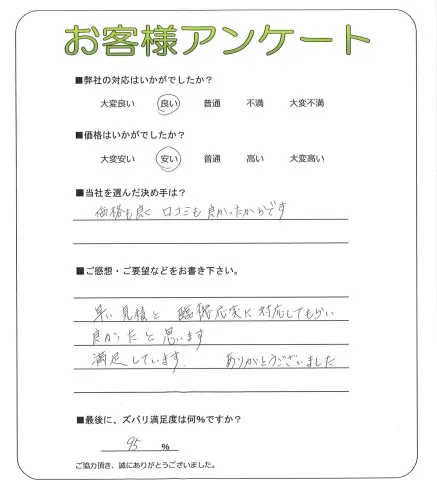 お客様アンケート
■弊社の対応はいかがでしたか？
大変良い 良い 普通 不満 大変不満
■価格はいかがでしたか？
大変安い 安い 普通 高い 大変高い
■当社を選んだ決め手は？
価格も良く 口コミも良かったからです
■ご感想・ご要望などをお書き下さい。
早い見積と 臨機応変に対応してもらい
良かったと思います
満足しています. ありがとうございました
■最後に、ズバリ満足度は何％ですか？
95 ％
ご協力頂き、誠にありがとうございました。